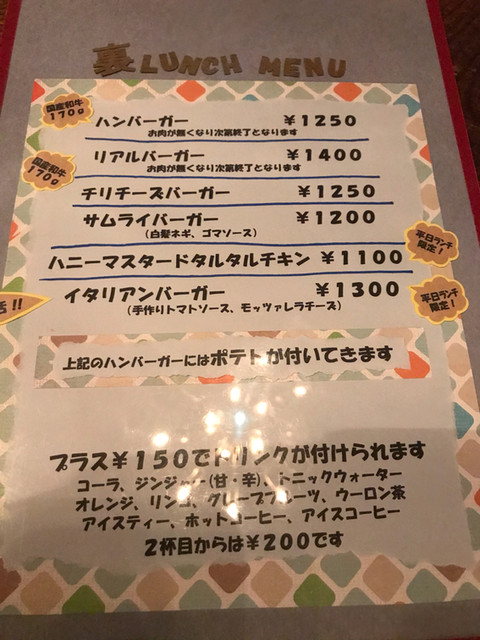 裏LUNCH MENU
国産和牛
170g
ハンバーガー ¥1250
お肉が無くなり次第終了となります
国産和牛
170g
リアルバーガー ¥1400
お肉が無くなり次第終了となります
チリチーズバーガー ¥1250
サムライバーガー ¥1200
(白髪ネギ、ゴマソース)
平日ランチ
限定!
ハニーマスタードタルタルチキン ¥1100
イタリアンバーガー ¥1300
(手作りトマトソース、モッツァレラチーズ)
平日ランチ
限定!
!!
上記のハンバーガーにはポテトが付いてきます
プラス¥150でドリンクが付けられます
コーラ、ジンジャー(甘・辛)、トニックウォーター
オレンジ、リンゴ、グレープフルーツ、ウーロン茶
アイスティー、ホットコーヒー、アイスコーヒー
2杯目からは¥200です